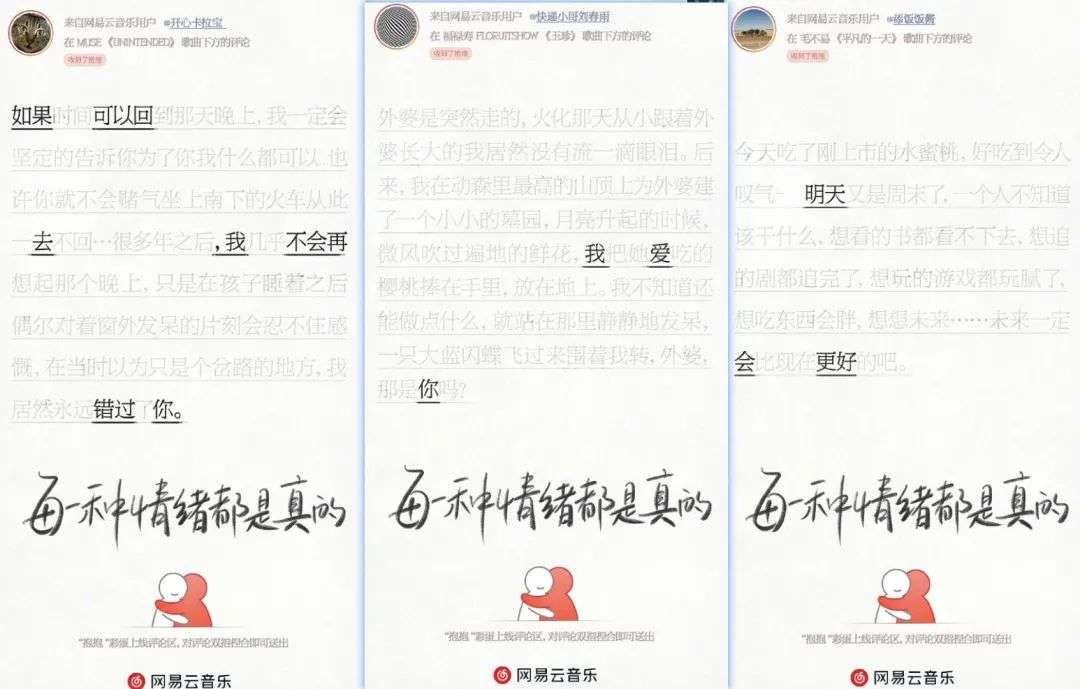 来自网易云音乐用户 @开心卡拉宝
在 MUSE《UNINTENDED》歌曲下方的评论
收到了抱抱
如果时间可以回到那天晚上,我一定会
坚定的告诉你为了你我什么都可以.也
许你就不会赌气坐上南下的火车从此
一去不回…很多年之后,我几乎不会再
想起那个晚上,只是在孩子睡着之后
偶尔对着窗外发呆的片刻会忍不住感
慨,在当时以为只是个岔路的地方,我
居然永远错过了你。
每一种情绪都是真的
“抱抱”彩蛋上线评论区,对评论双指捏合即可送出
网易云音乐
来自网易云音乐用户 @快递小哥刘春雨
在 福禄寿 FLORUITSHOW《玉珍》歌曲下方的评论
收到了抱抱
外婆是突然走的,火化那天从小跟着外
婆长大的我居然没有流一滴眼泪。后
来,我在动森里最高的山顶上为外婆建
了一个小小的墓园,月亮升起的时候,
微风吹过遍地的鲜花,我把她爱吃的
樱桃捧在手里,放在地上。我不知道还
能做点什么,就站在那里静静地发呆,
一只大蓝闪蝶飞过来围着我转,外婆,
那是你吗?
每一种情绪都是真的
“抱抱”彩蛋上线评论区,对评论双指捏合即可送出
网易云音乐
来自网易云音乐用户 @饭饭酱
在 毛不易《平凡的一天》歌曲下方的评论
收到了抱抱
今天吃了刚上市的水蜜桃,好吃到令人
叹气~ 明天又是周末了,一个人不知道
该干什么,想看的书都看不下去,想追
的剧都追完了,想玩的游戏都玩腻了,
想吃东西会胖,想想未来……未来一定
会比现在更好的吧。
每一种情绪都是真的
“抱抱”彩蛋上线评论区,对评论双指捏合即可送出
网易云音乐